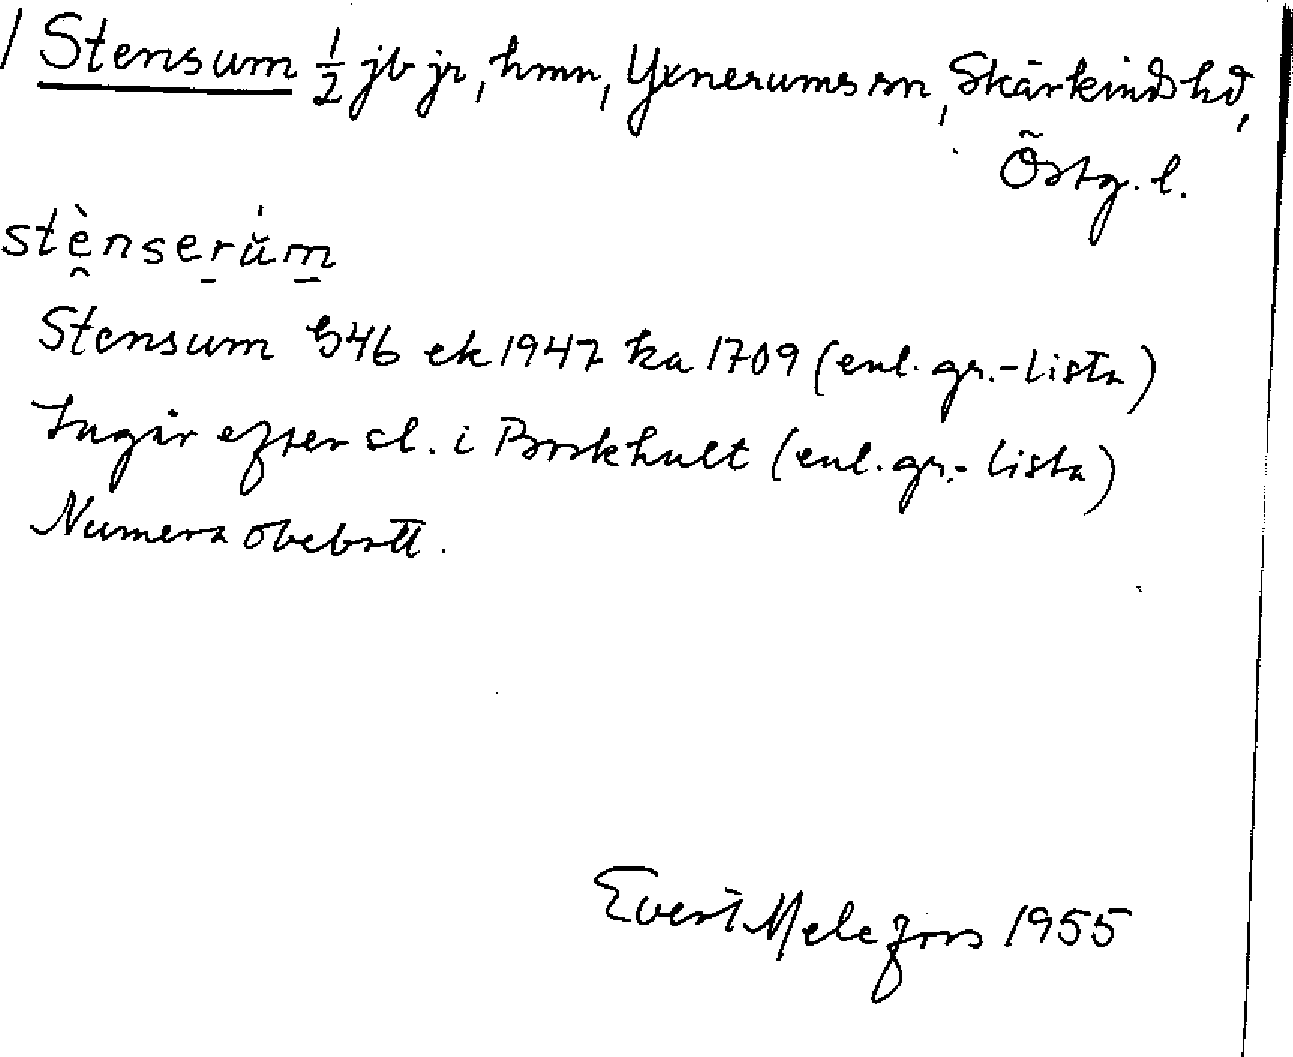 / Stensum ½ jb jr, hmn, Yxnerums sn, Skärkinds hd,
Östg. l.
stènserùm
Stensum 346 ek 1947 ka 1709 (enl. gr.-lista)
Ingår efter sl. i Borkhult (enl. gr.-lista)
Numera obebott.
Evert Melefors 1955